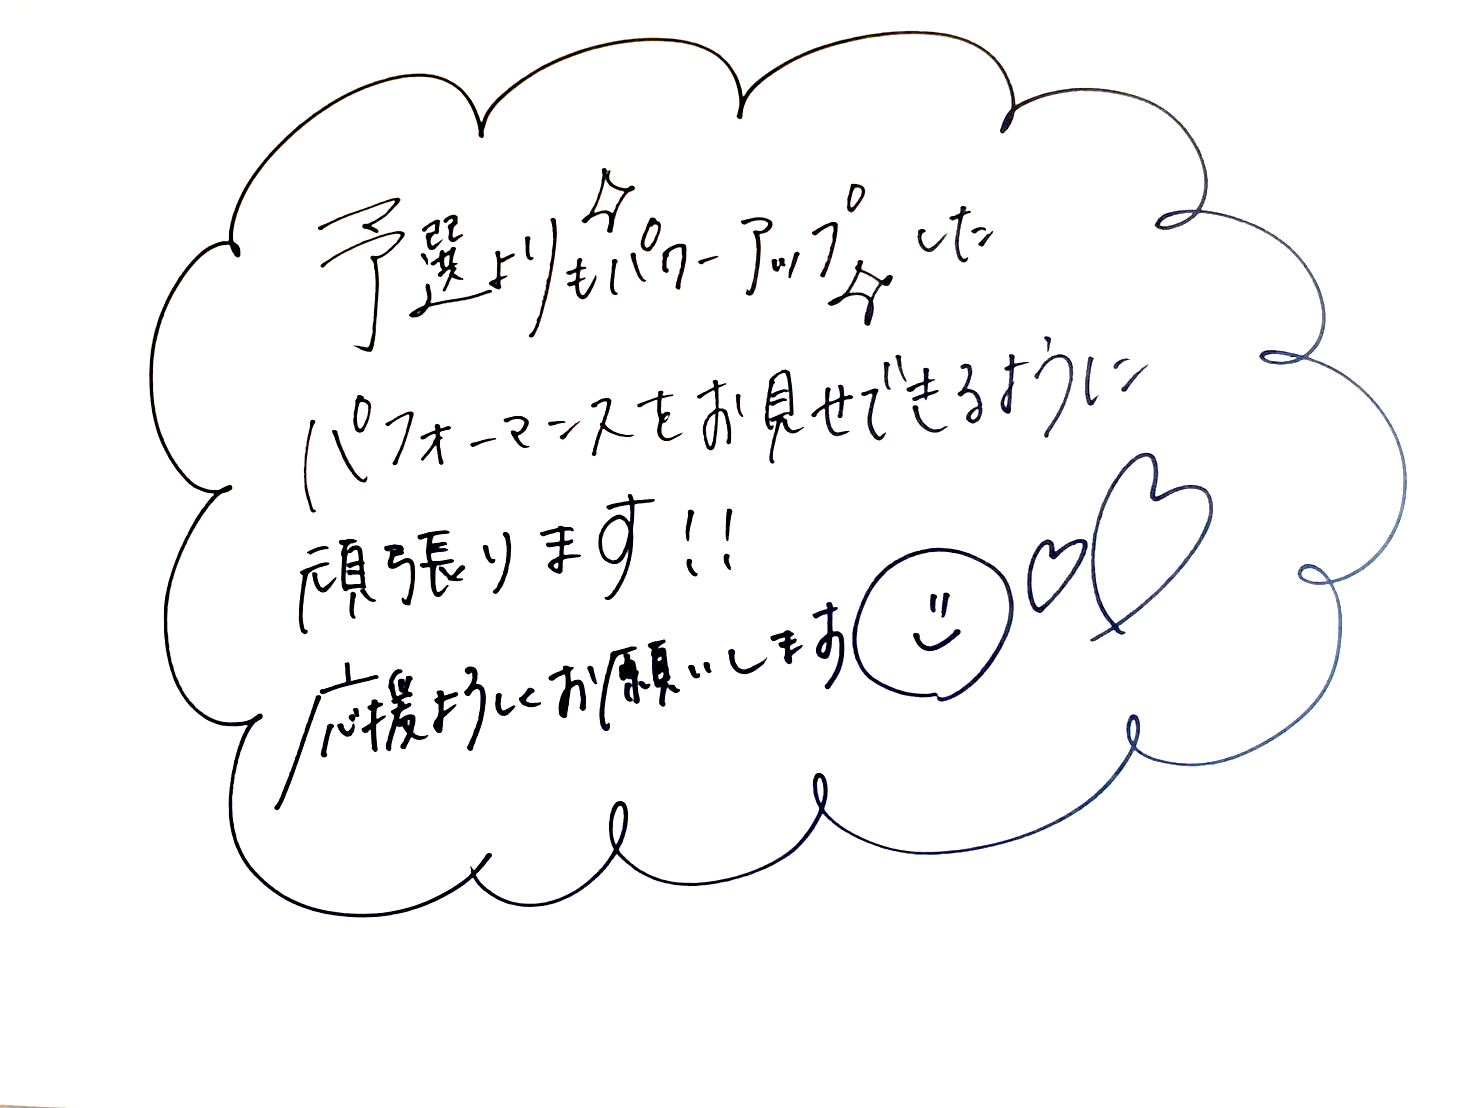 予選よりもパワーアップした
パフォーマンスをお見せできるように
頑張ります!!
応援よろしくお願いします